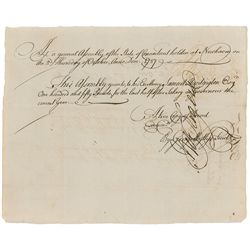 At a general Assembly of the State of Connecticut holden at Newhaven on
the 2d Thursday of October Anno Dom. 1787
This Assembly grants to his Excellency Samuel Huntington Esqr
One hundred and fifty Pounds, for the last half of his Salary as Governour the
current Year
A true Copy of Record
Examined
By